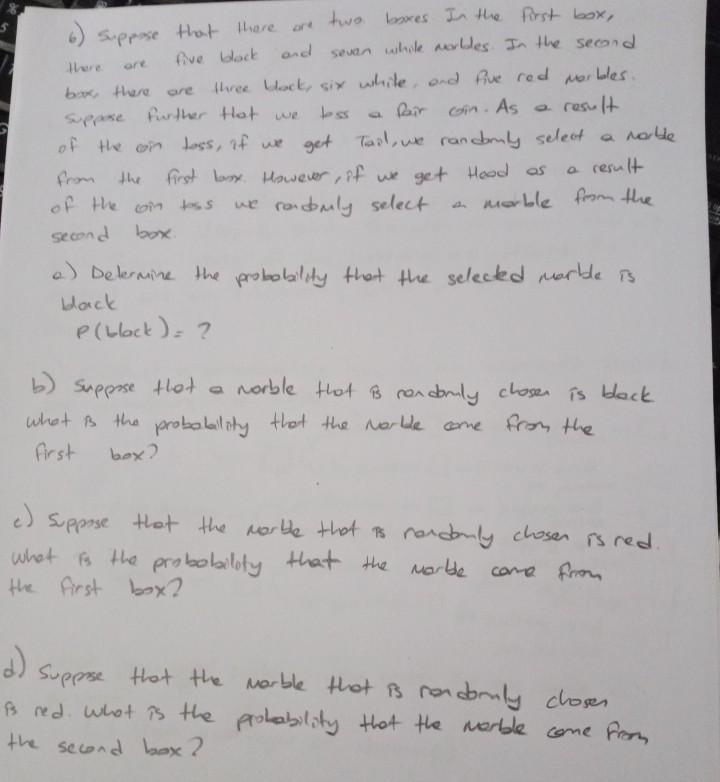 6) Suppose that there are two boxes In the first box,
there are five black and seven while marbles. In the second
box, there are three black, six white, and five red marbles.
Suppose further that we toss a fair coin. As a result
of the coin toss, if we get Tail, we randomly select a marble
from the first box. However, if we get Head as a result
of the coin toss we randomly select a marble from the
second box.
a) Determine the probability that the selected marble is
black
P(black) = ?
b) Suppose that a marble that is randomly chosen is black
what is the probability that the marble come from the
first box?
c) Suppose that the marble that is randomly chosen is red.
what is the probability that the marble came from
the first box?
d) Suppose that the marble that is randomly chosen
is red. what is the probability that the marble come from
the second box?